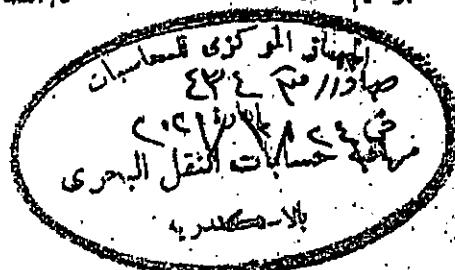 الجهاز المركزى للمحاسبات
صادر رقم ٤٣٤
إدارة
فى ٢٤ / ٨ / ٢٠٢١
مراقبة حسابات النقل البحرى
بالاسكندريه